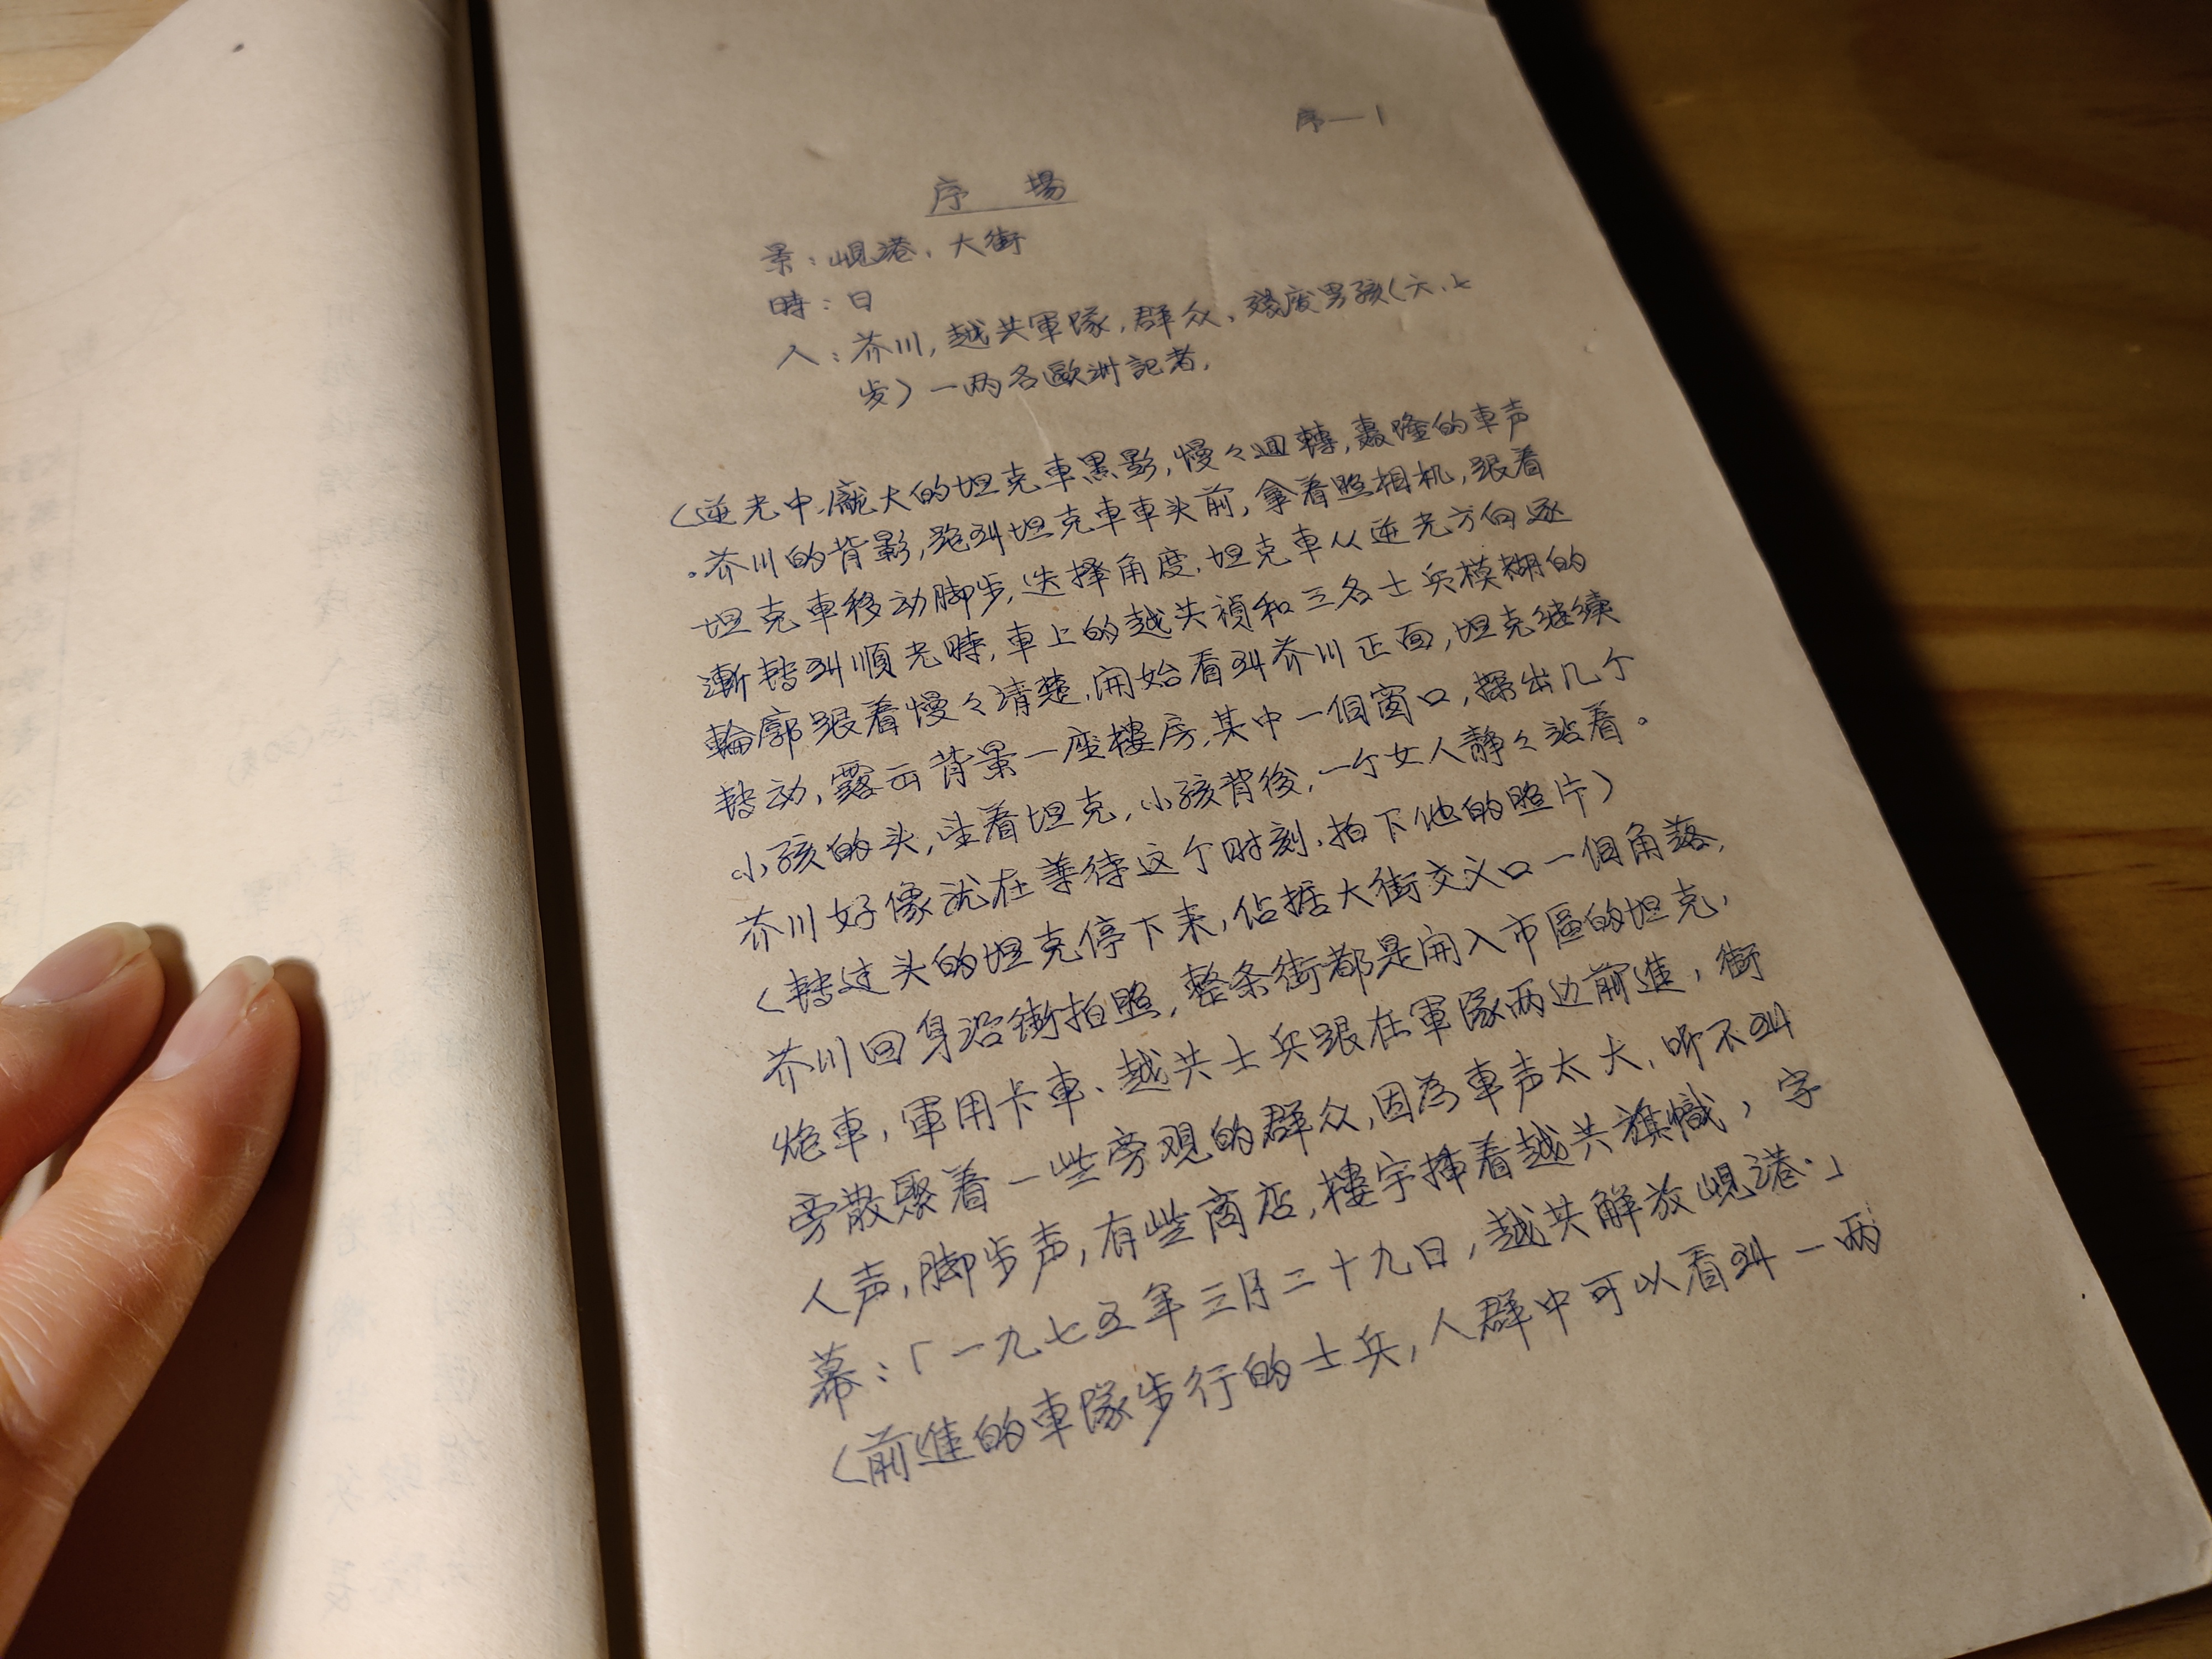 序—1
序 場
景：峴港、大街
時：日
人：芥川，越共軍隊，群众、殘废男孩（六、七
岁）一两名歐洲記者，
（逆光中，龐大的坦克車黑影，慢々迴轉，轟隆的車声
。芥川的背影，跑到坦克車車头前，拿着照相机，跟着
坦克車移动脚步，选择角度，坦克車从逆光方向逐
漸轉到順光時，車上的越共旗和三名士兵模糊的
輪廓跟着慢々清楚，開始看到芥川正面，坦克继续
转动，露出背景一座樓房，其中一個窗口，探出几个
小孩的头，望着坦克，小孩背後，一个女人静々站着。
芥川好像就在等待这个时刻，拍下他的照片）
（转过头的坦克停下来，佔据大街交义口一個角落，
芥川回身沿街拍照，整条街都是開入市區的坦克，
炮車，軍用卡車、越共士兵跟在軍隊两边前進，街
旁散聚着一些旁观的群众，因為車声太大，听不到
人声，脚步声，有些商店，樓宇揷着越共旗幟，字
幕：「一九七五年三月二十九日，越共解放峴港·」
（前進的車隊步行的士兵，人群中可以看到一两